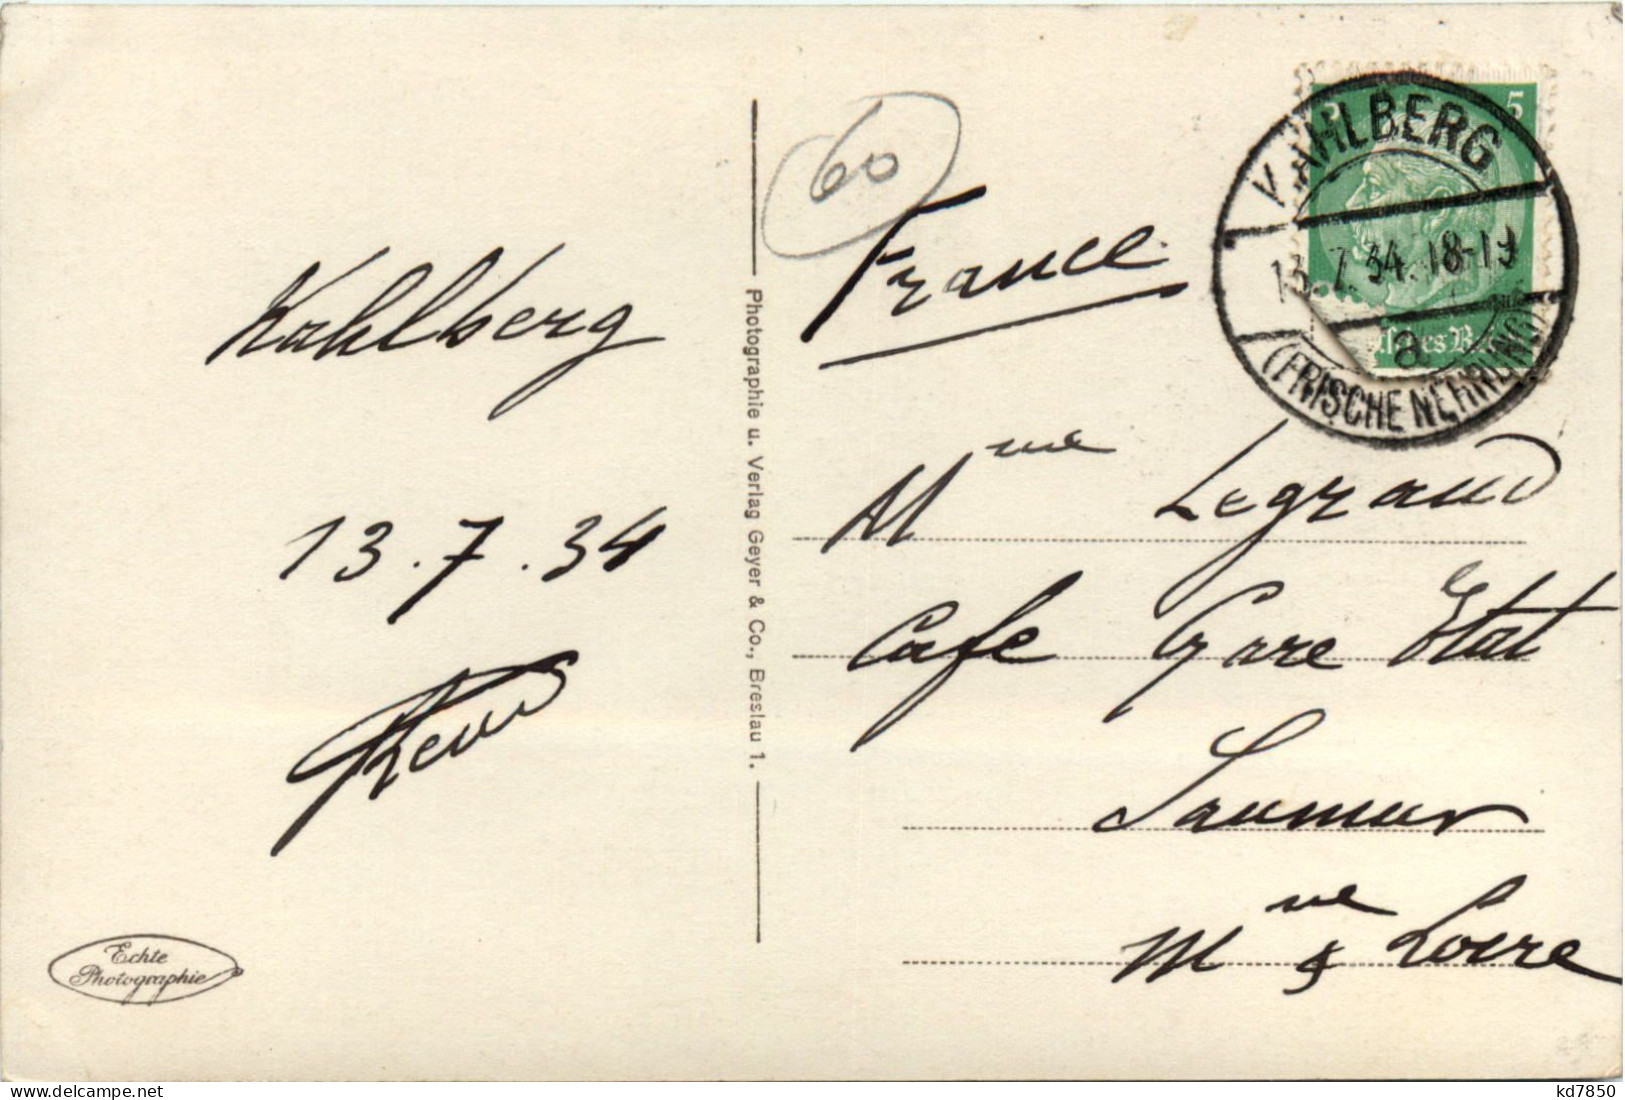 60
France
KAHLBERG
5
13.7.34. 18-19
a
(FRISCHE NEHRUNG)
Kahlberg
13.7.34
Photographie u. Verlag Geyer & Co., Breslau 1.
Mme Legrand
Cafe Gare Etat
Saumur
Mne & Loire
Echte
Photographie
delcampe.net
kd7850